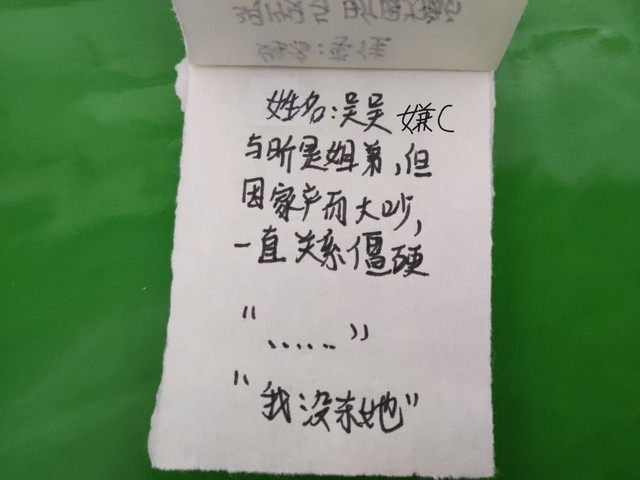 姓名:吴吴 嫌C
与昕是姐弟,但
因家产而大吵,
一直关系僵硬
“......”
“我没杀她”